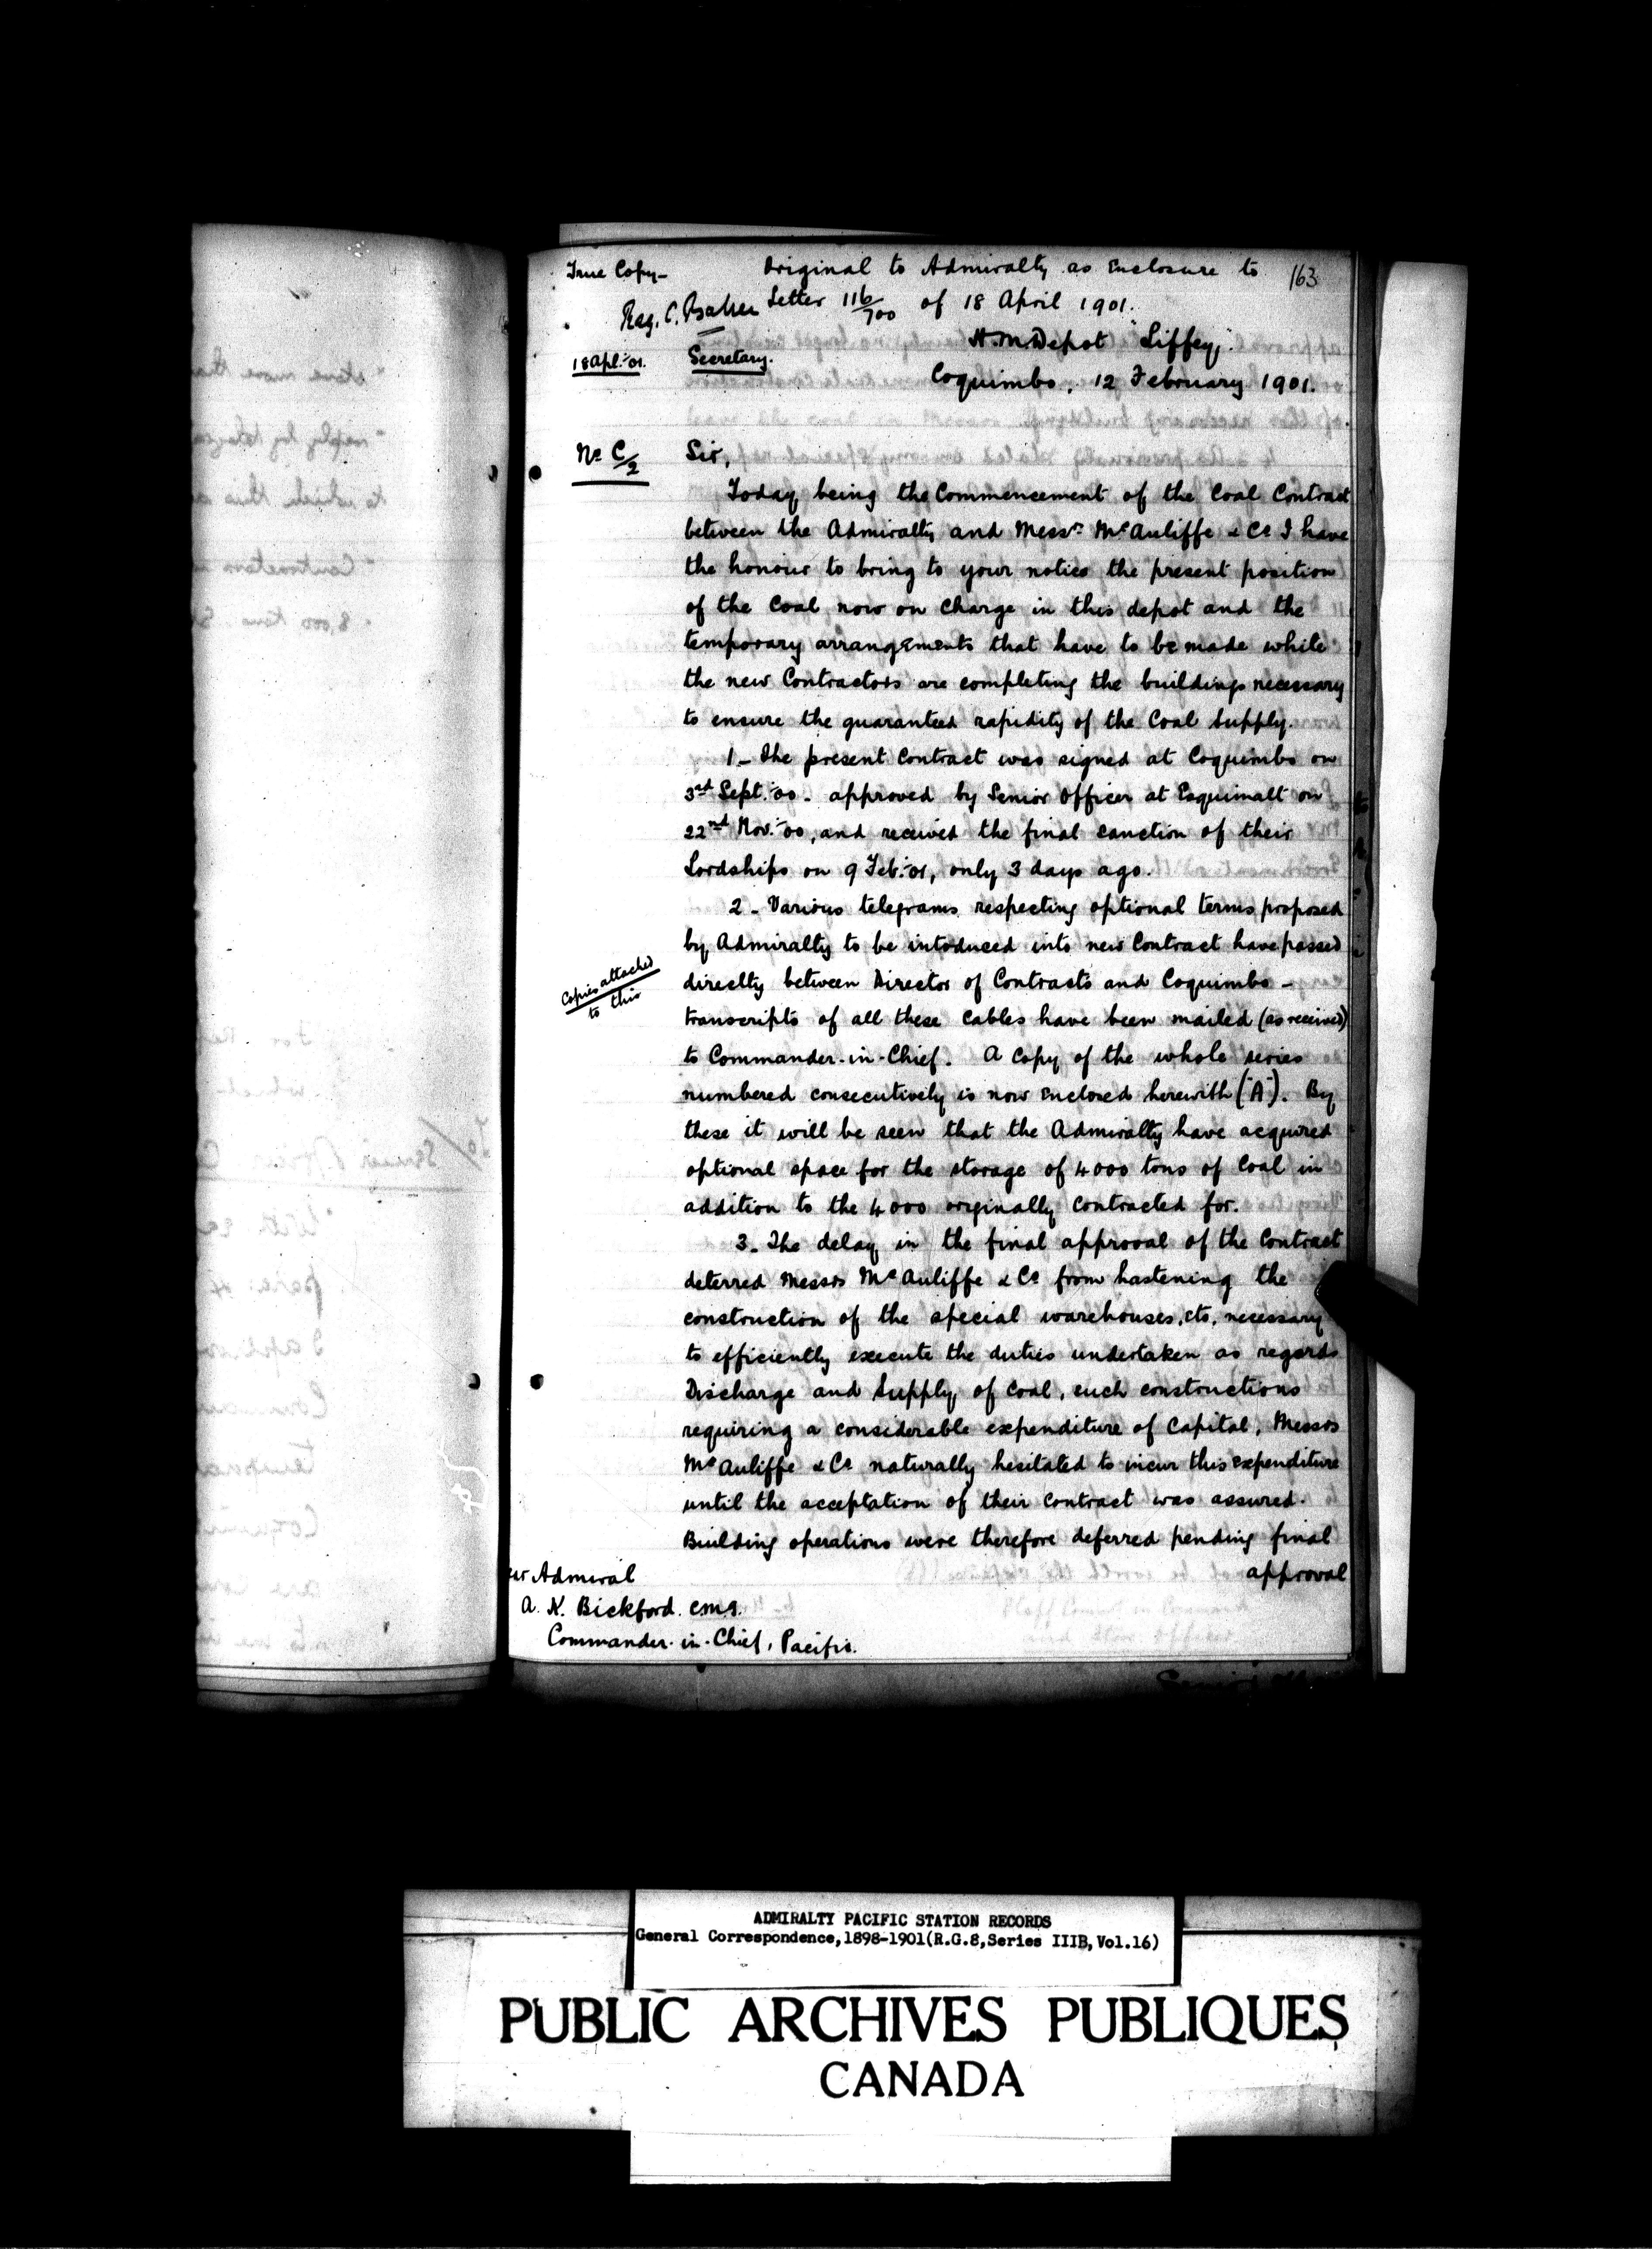 True Copy- Original to Admiralty as Enclosure to 163
Reg. C. Baker Letter 116/700 of 18 April 1901.
H.M. Depot "Liffey".
18 Apl. '01. Secretary.
Coquimbo, 12 February 1901.
No C/2 Sir,
Today being the Commencement of the Coal Contract
between the Admiralty and Messrs McAuliffe & Co I have
the honour to bring to your notice the present position
of the Coal now on Charge in this depot and the
temporary arrangements that have to be made while
the new Contractors are completing the buildings necessary
to ensure the guaranteed rapidity of the Coal Supply.
1_ The present Contract was signed at Coquimbo on
3rd Sept. '00. approved by Senior Officer at Esquimalt on
22nd Nov. '00, and received the final sanction of their
Lordships on 9 Feb. '01, only 3 days ago.
2_ Various telegrams respecting optional terms proposed
by Admiralty to be intoduced into new Contract have passed
directly between Director of Contracts and Coquimbo -
Copies attached
to this
transcripts of all these Cables have been mailed (as received)
to Commander-in-Chief. A Copy of the whole series
numbered consecutively is now Enclosed herewith ("A"). By
these it will be seen that the Admiralty have acquired
optional space for the storage of 4000 tons of Coal in
addition to the 4000 originally Contracted for.
3_ The delay in the final approval of the Contract
deterred Messrs McAuliffe & Co from hastening the
construction of the special warehouses, etc, necessary
to efficiently execute the duties undertaken as regards
Discharge and Supply of Coal, such constructions
requiring a considerable expenditure of Capital, Messrs
McAuliffe & Co naturally hesitated to incur this Expenditure
until the acceptation of their Contract was assured.
Building operations were therefore deferred pending final
approval
Admiral
A. K. Bickford. C.M.G.
Commander-in-Chief, Pacific.
ADMIRALTY PACIFIC STATION RECORDS
General Correspondence,1898-1901(R.G.8,Series IIIB,Vol.16)
PUBLIC ARCHIVES PUBLIQUES
CANADA